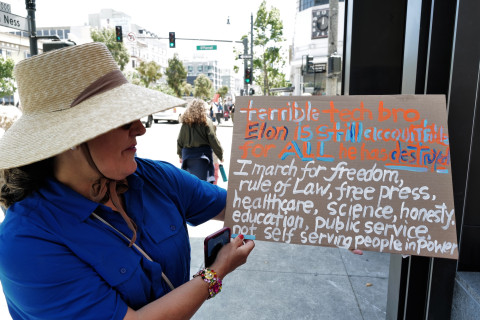 Ness
terrible tech bro
Elon is still accountable
for ALL he has destroyed
I march for freedom,
rule of Law, free press,
healthcare, science, honesty,
education, public service,
not self serving people in power